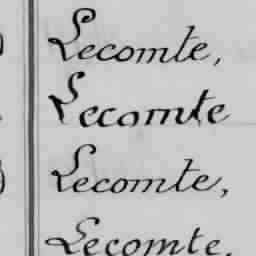 Lecomte,
Lecomte
Lecomte,
Lecomte,